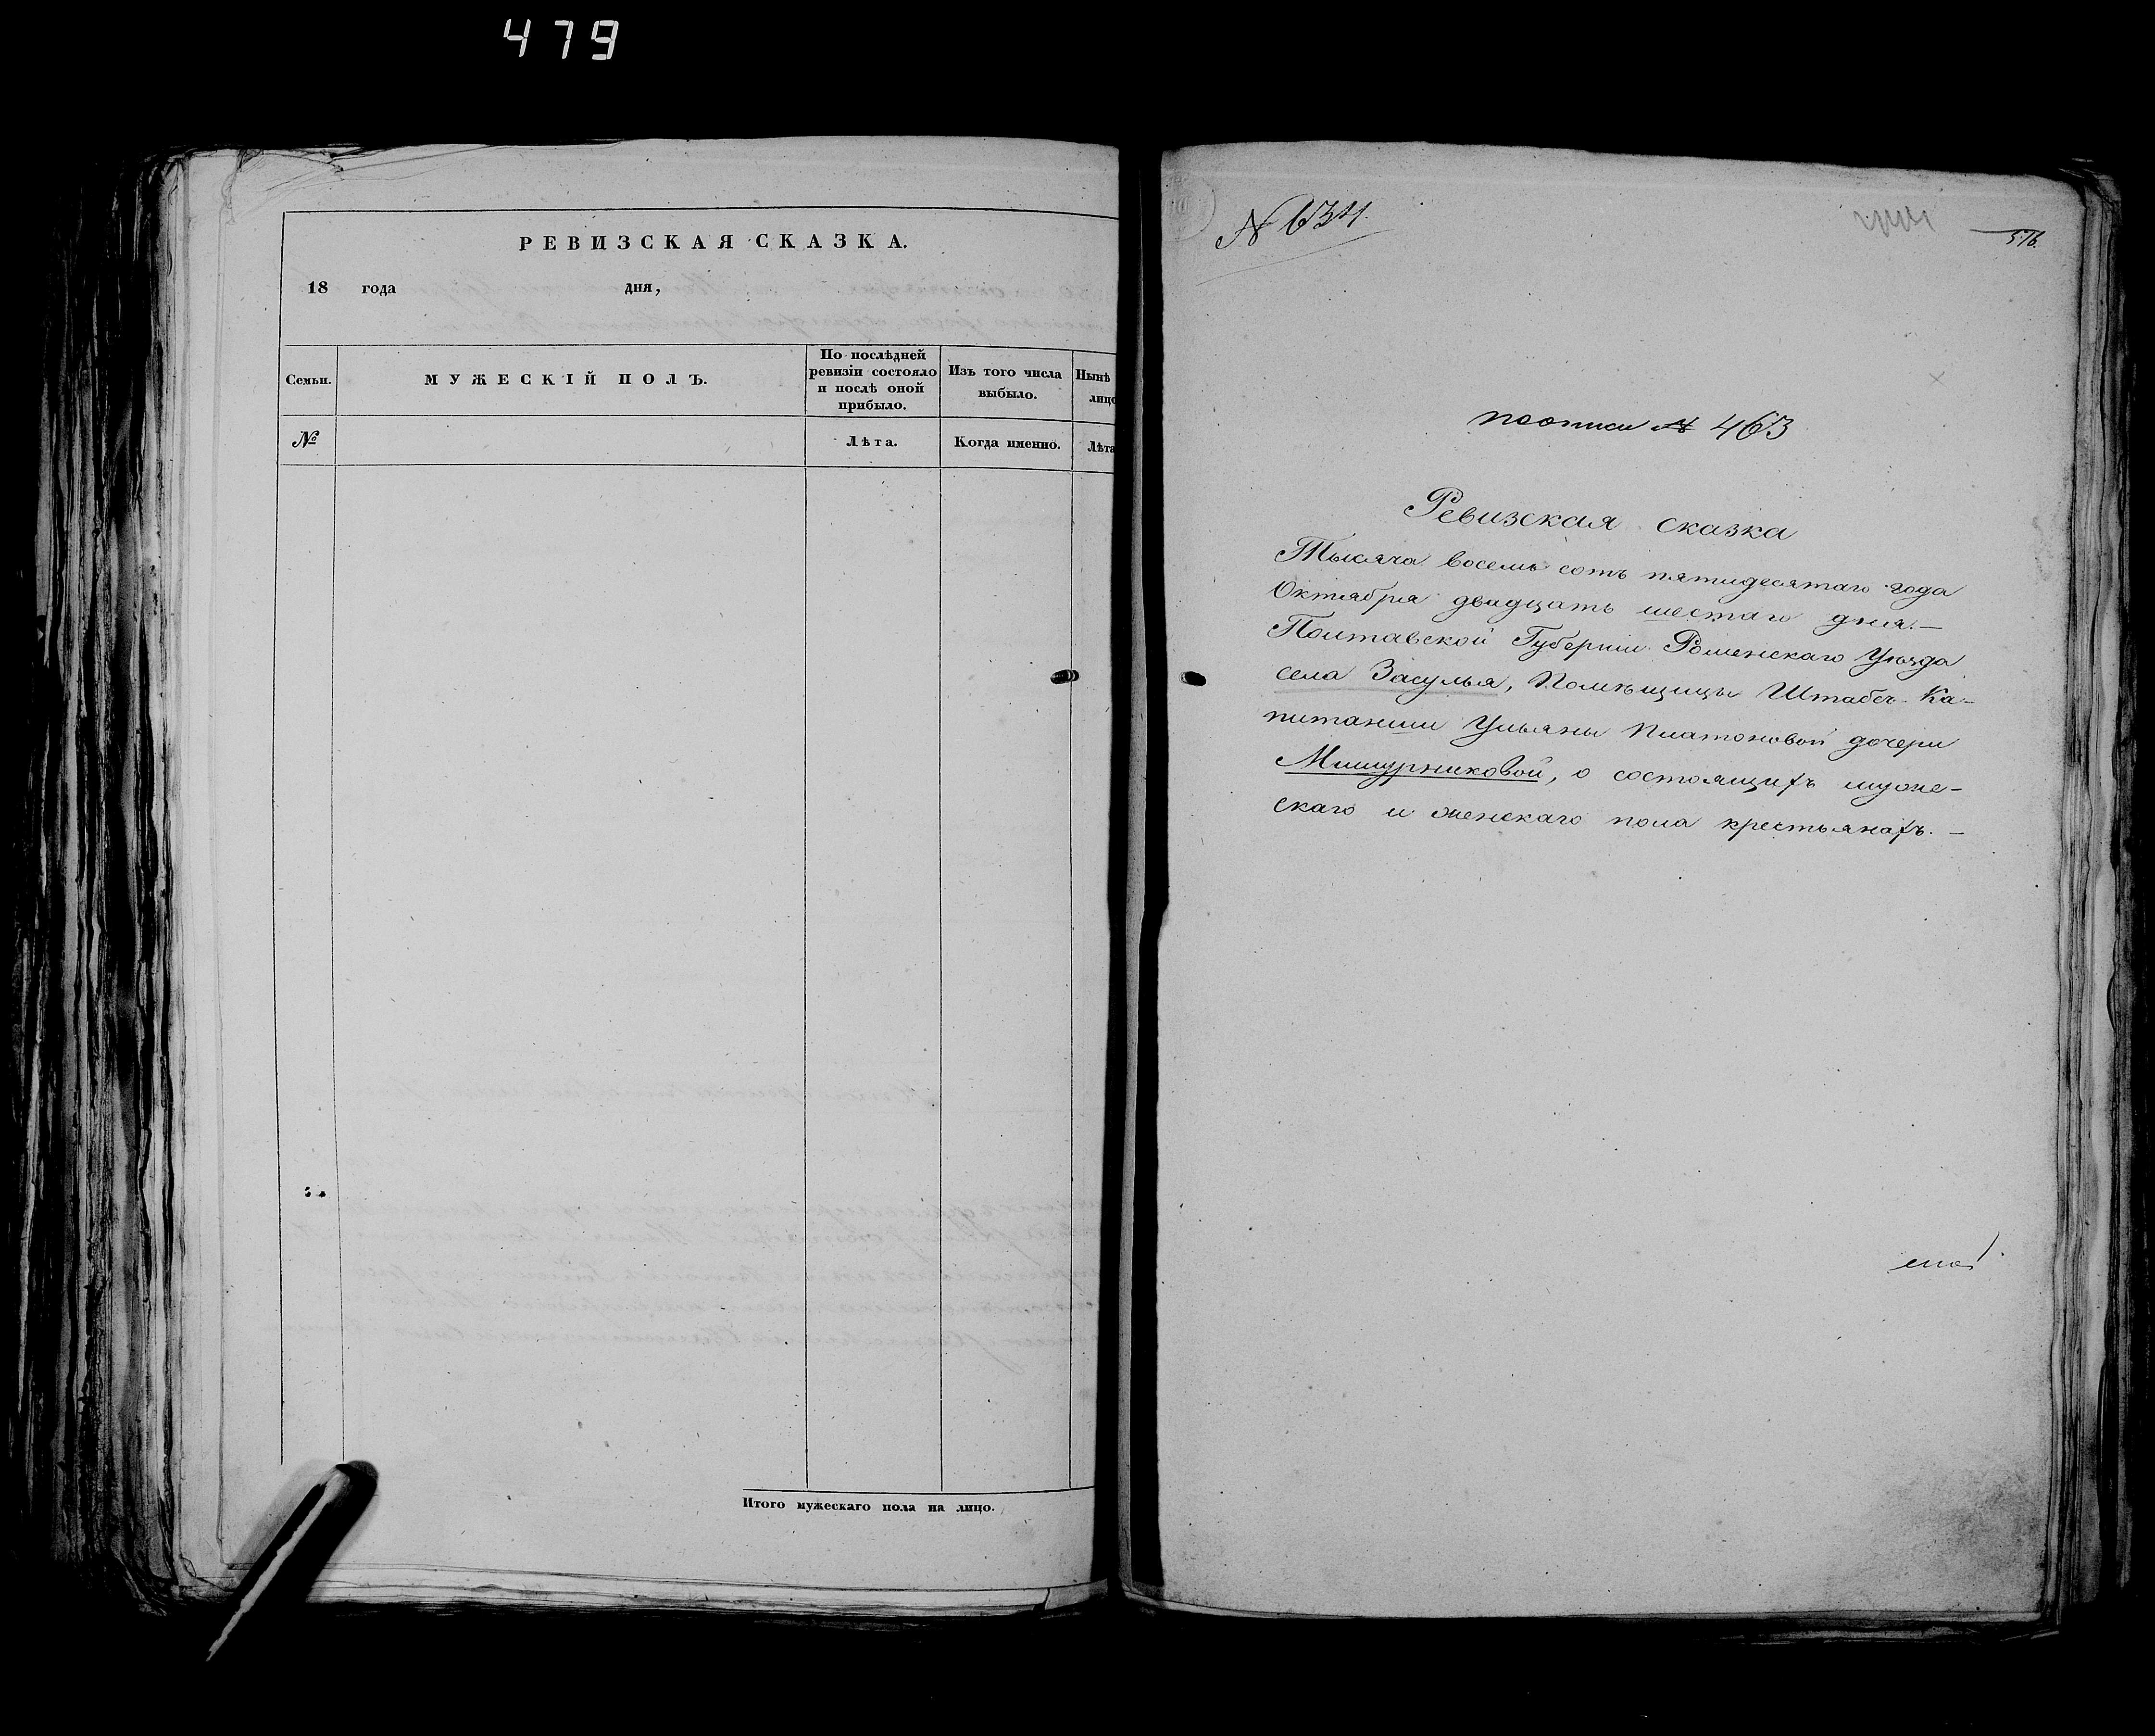 479
РЕВИЗСКАЯ СКАЗКА.
18 года дня,
Семьи.
МУЖЕСКІЙ ПОЛЪ.
По послѣдней
ревизіи состояло
и послѣ оной
прибыло.
Изъ того числа
выбыло.
Нынѣ
лицо
№
Лѣта.
Когда именно.
Лѣта
Итого мужескаго пола на лицо.
N 634.
576.
по описи № 463
Ревизская сказка
Тысяча восемь сотъ пятидесятаго года
Октября двадцать шестаго дня.—
Полтавской Губерніи Роменскаго Уѣзда
села Засулья, Помѣщицы Штабсъ-Ка-
питанши Ульяны Платоновой дочери
Мишурниковой, о состоящихъ муже-
скаго и женскаго пола крестьянахъ.—